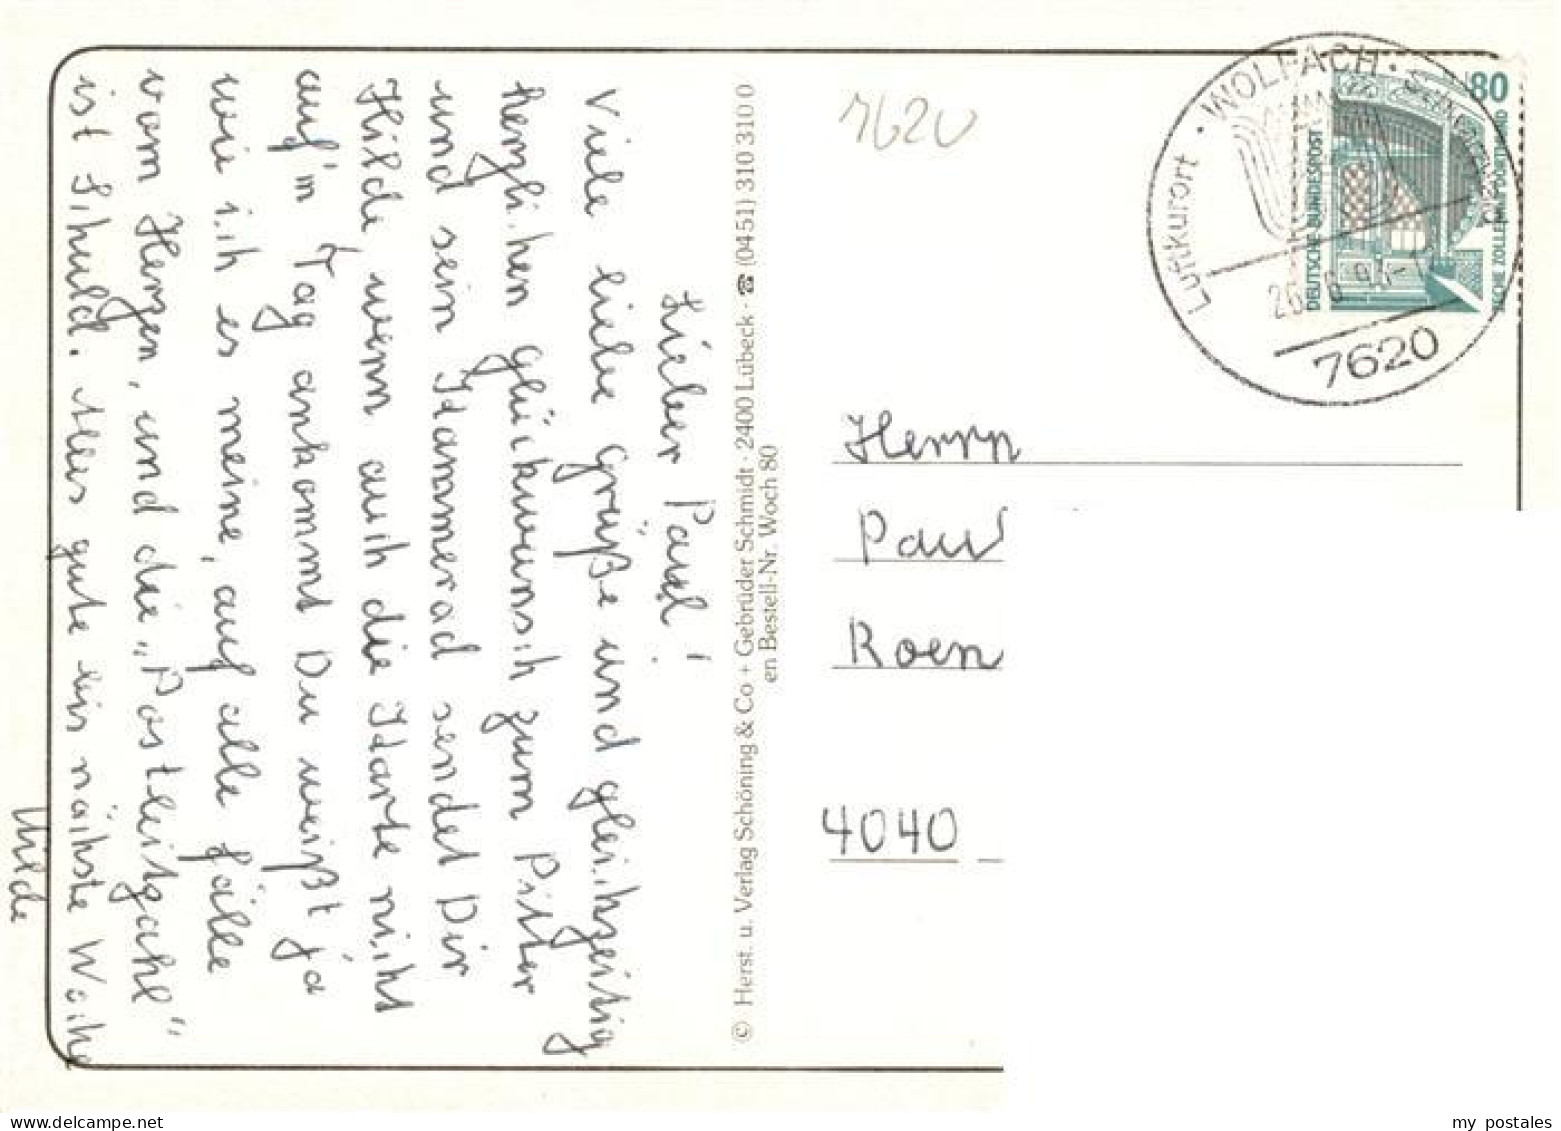 Lieber Paul!
Viele liebe grüße und gleichzeitig
herzlichen glückwunsch zum Pitter
und sein Kammerad sendet Dir
Hilde, wenn auch die Karte nicht
auf'm Tag ankommt Du weißt ja
wie ich es meine, auf alle fälle
vom Herzen, und die „Postleitzahl"
ist Schuld. Alles gute bis nächste Woche
Hilde
© Herst. u. Verlag Schöning & Co + Gebrüder Schmidt · 2400 Lübeck · ☎ (0451) 310 310 0
en Bestell-Nr. Woch 80
7620
Luftkurort · WOLFACH ·
26. 6
7620
80
DEUTSCHE BUNDESPOST
Herrn
Paul
Roen
4040
my postales
www.delcampe.net